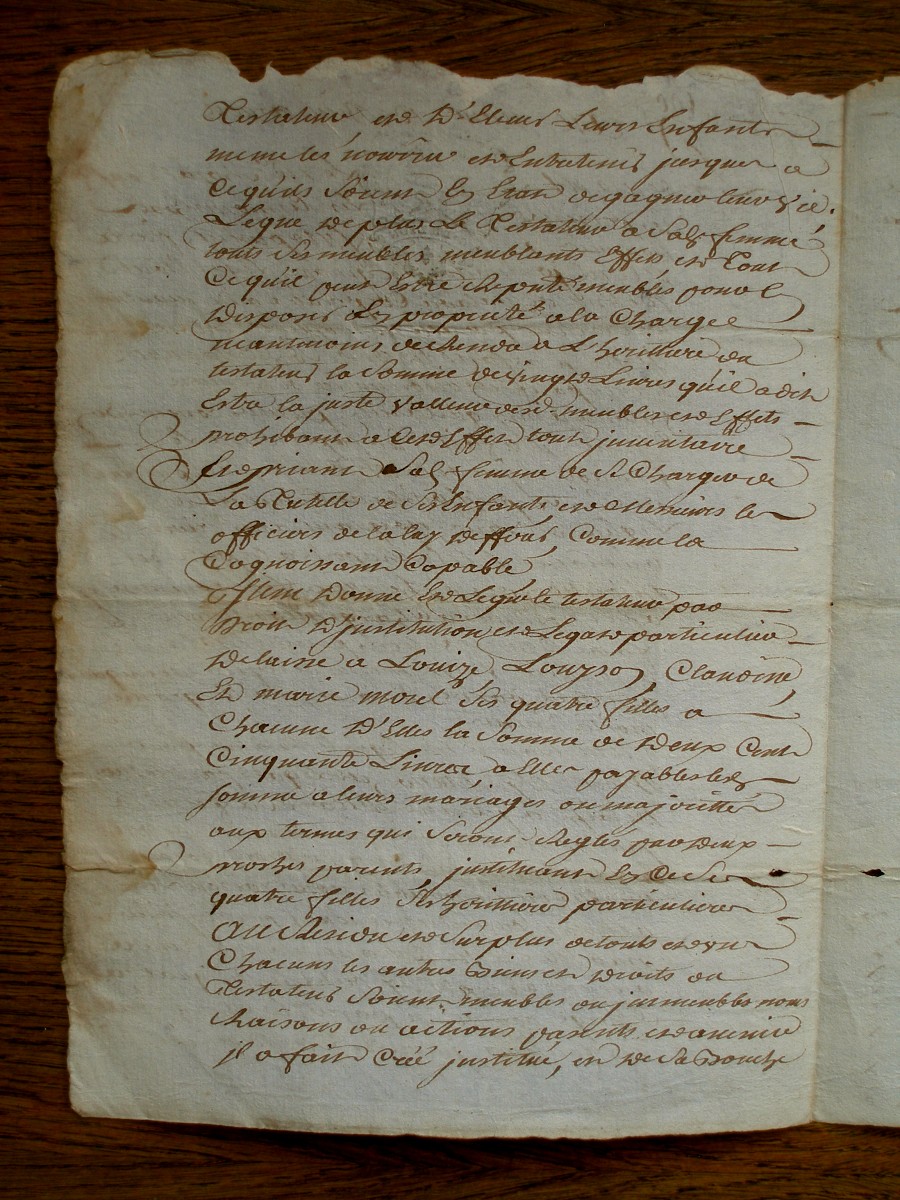 Testateur et d'Elever Leurs Enfants
meme les nourrir et Entretenir jusques a
Ce qu'ils Soient En Etat de gagner leur vie.
Legue de plus Le Testateur a Sad femme
touts Ses meubles meublants Effets et Tout
Ce qui peut Estre Reputé meubles pour En
Disposer En proprieté a la Charge
neantmoins de Rendre a L'heritiere du
testateur la Somme de vingt Livres qu'il a dit
Estre la juste Valleur desd meubles et Effets
prohibant a Cet Effet tout inventaire
Et priant Sad femme de Se Charger de
La Tutelle de Ses Enfants et Messieurs les
officiers de la
Cognoissant Capable
Item Donne Et Legue le testateur par
Droit D'institution et Legat particulier
Delaisse a Louize Louyson Claudine
Et marie morel Ses quatre filles a
Chacune D'Elles la Somme de Deux Cent
Cinquante Livres a Elles payables lesd
somme a leurs mariages ou majorittés
aux termes qui Seront Reglés par Deux
proches parents instituant En Ce Ses
quatre filles Ses heritiere particulieres
Au Residu et Surplus de touts et un
Chacuns les autres Biens et Droits du
Testateur Soient meubles ou immeubles noms
Raisons ou actions presents et avenir
il a fait Créé institue, et De Sa Bouche